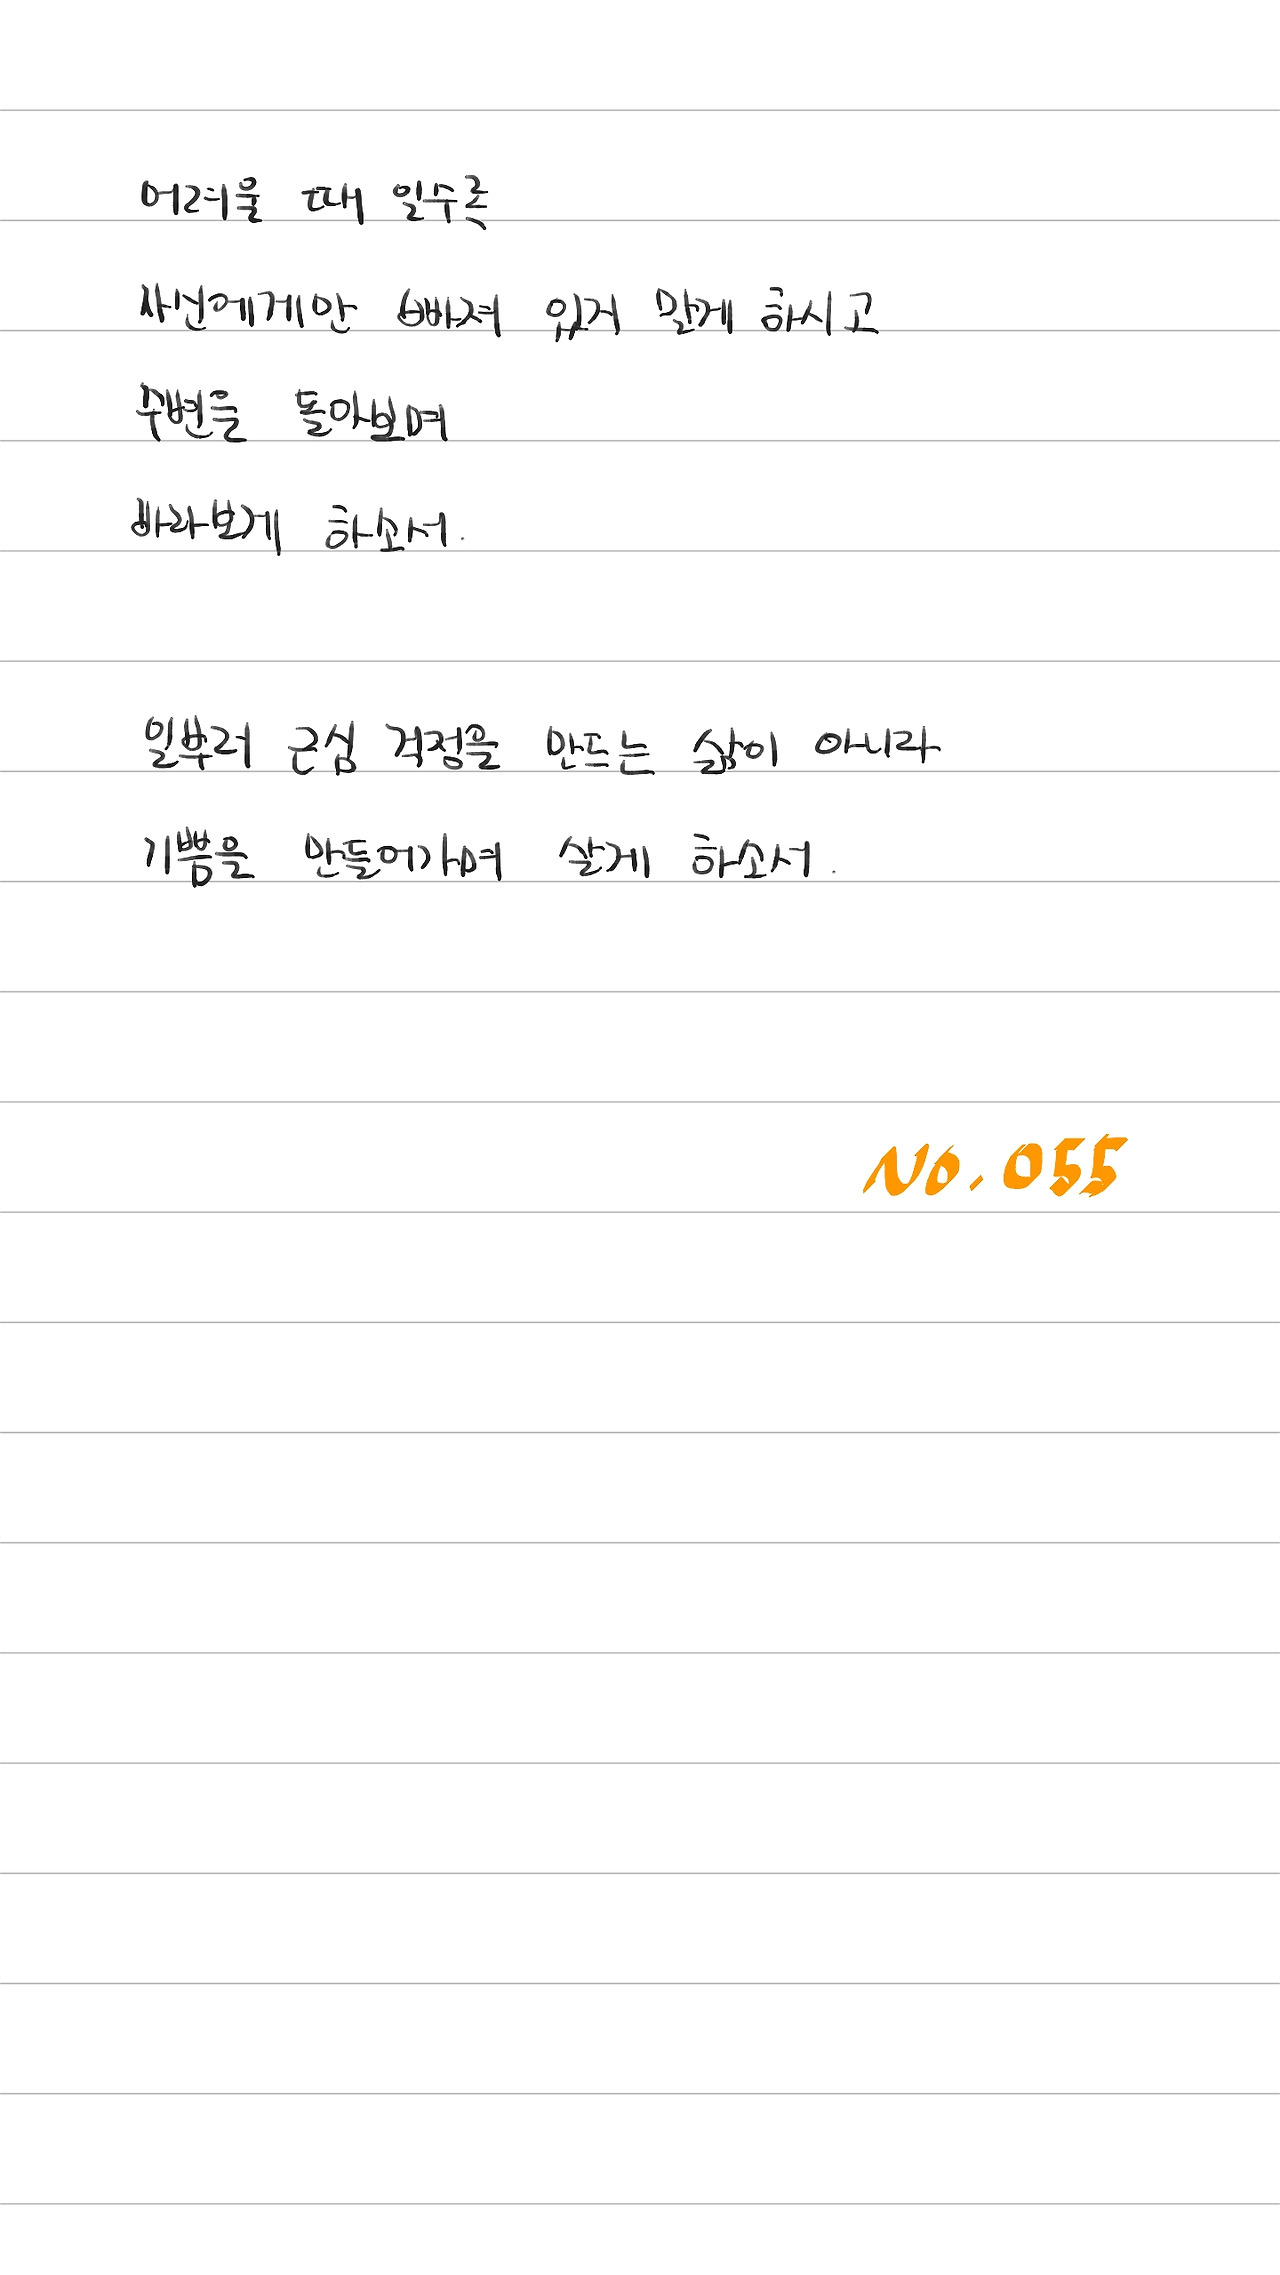 어려울 때 일수록
자신에게만 빠져 있지 말게 하시고
주변을 돌아보며
바라보게 하소서.
일부러 근심 걱정을 만드는 삶이 아니라
기쁨을 만들어가며 살게 하소서.
No. 055